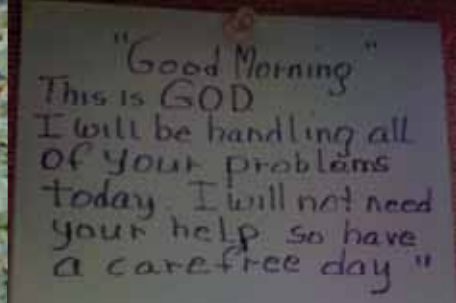 "Good Morning"
This is GOD
I will be handling all
of your problems
today. I will not need
your help so have
a carefree day"